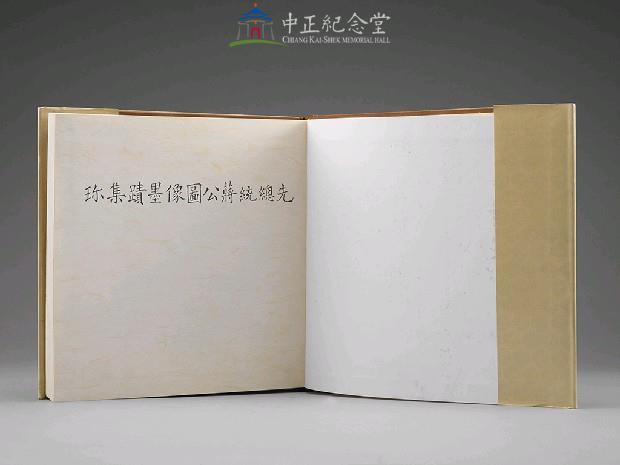 中正紀念堂
CHIANG KAI-SHEK MEMORIAL HALL
先總統蔣公圖像墨蹟集珍